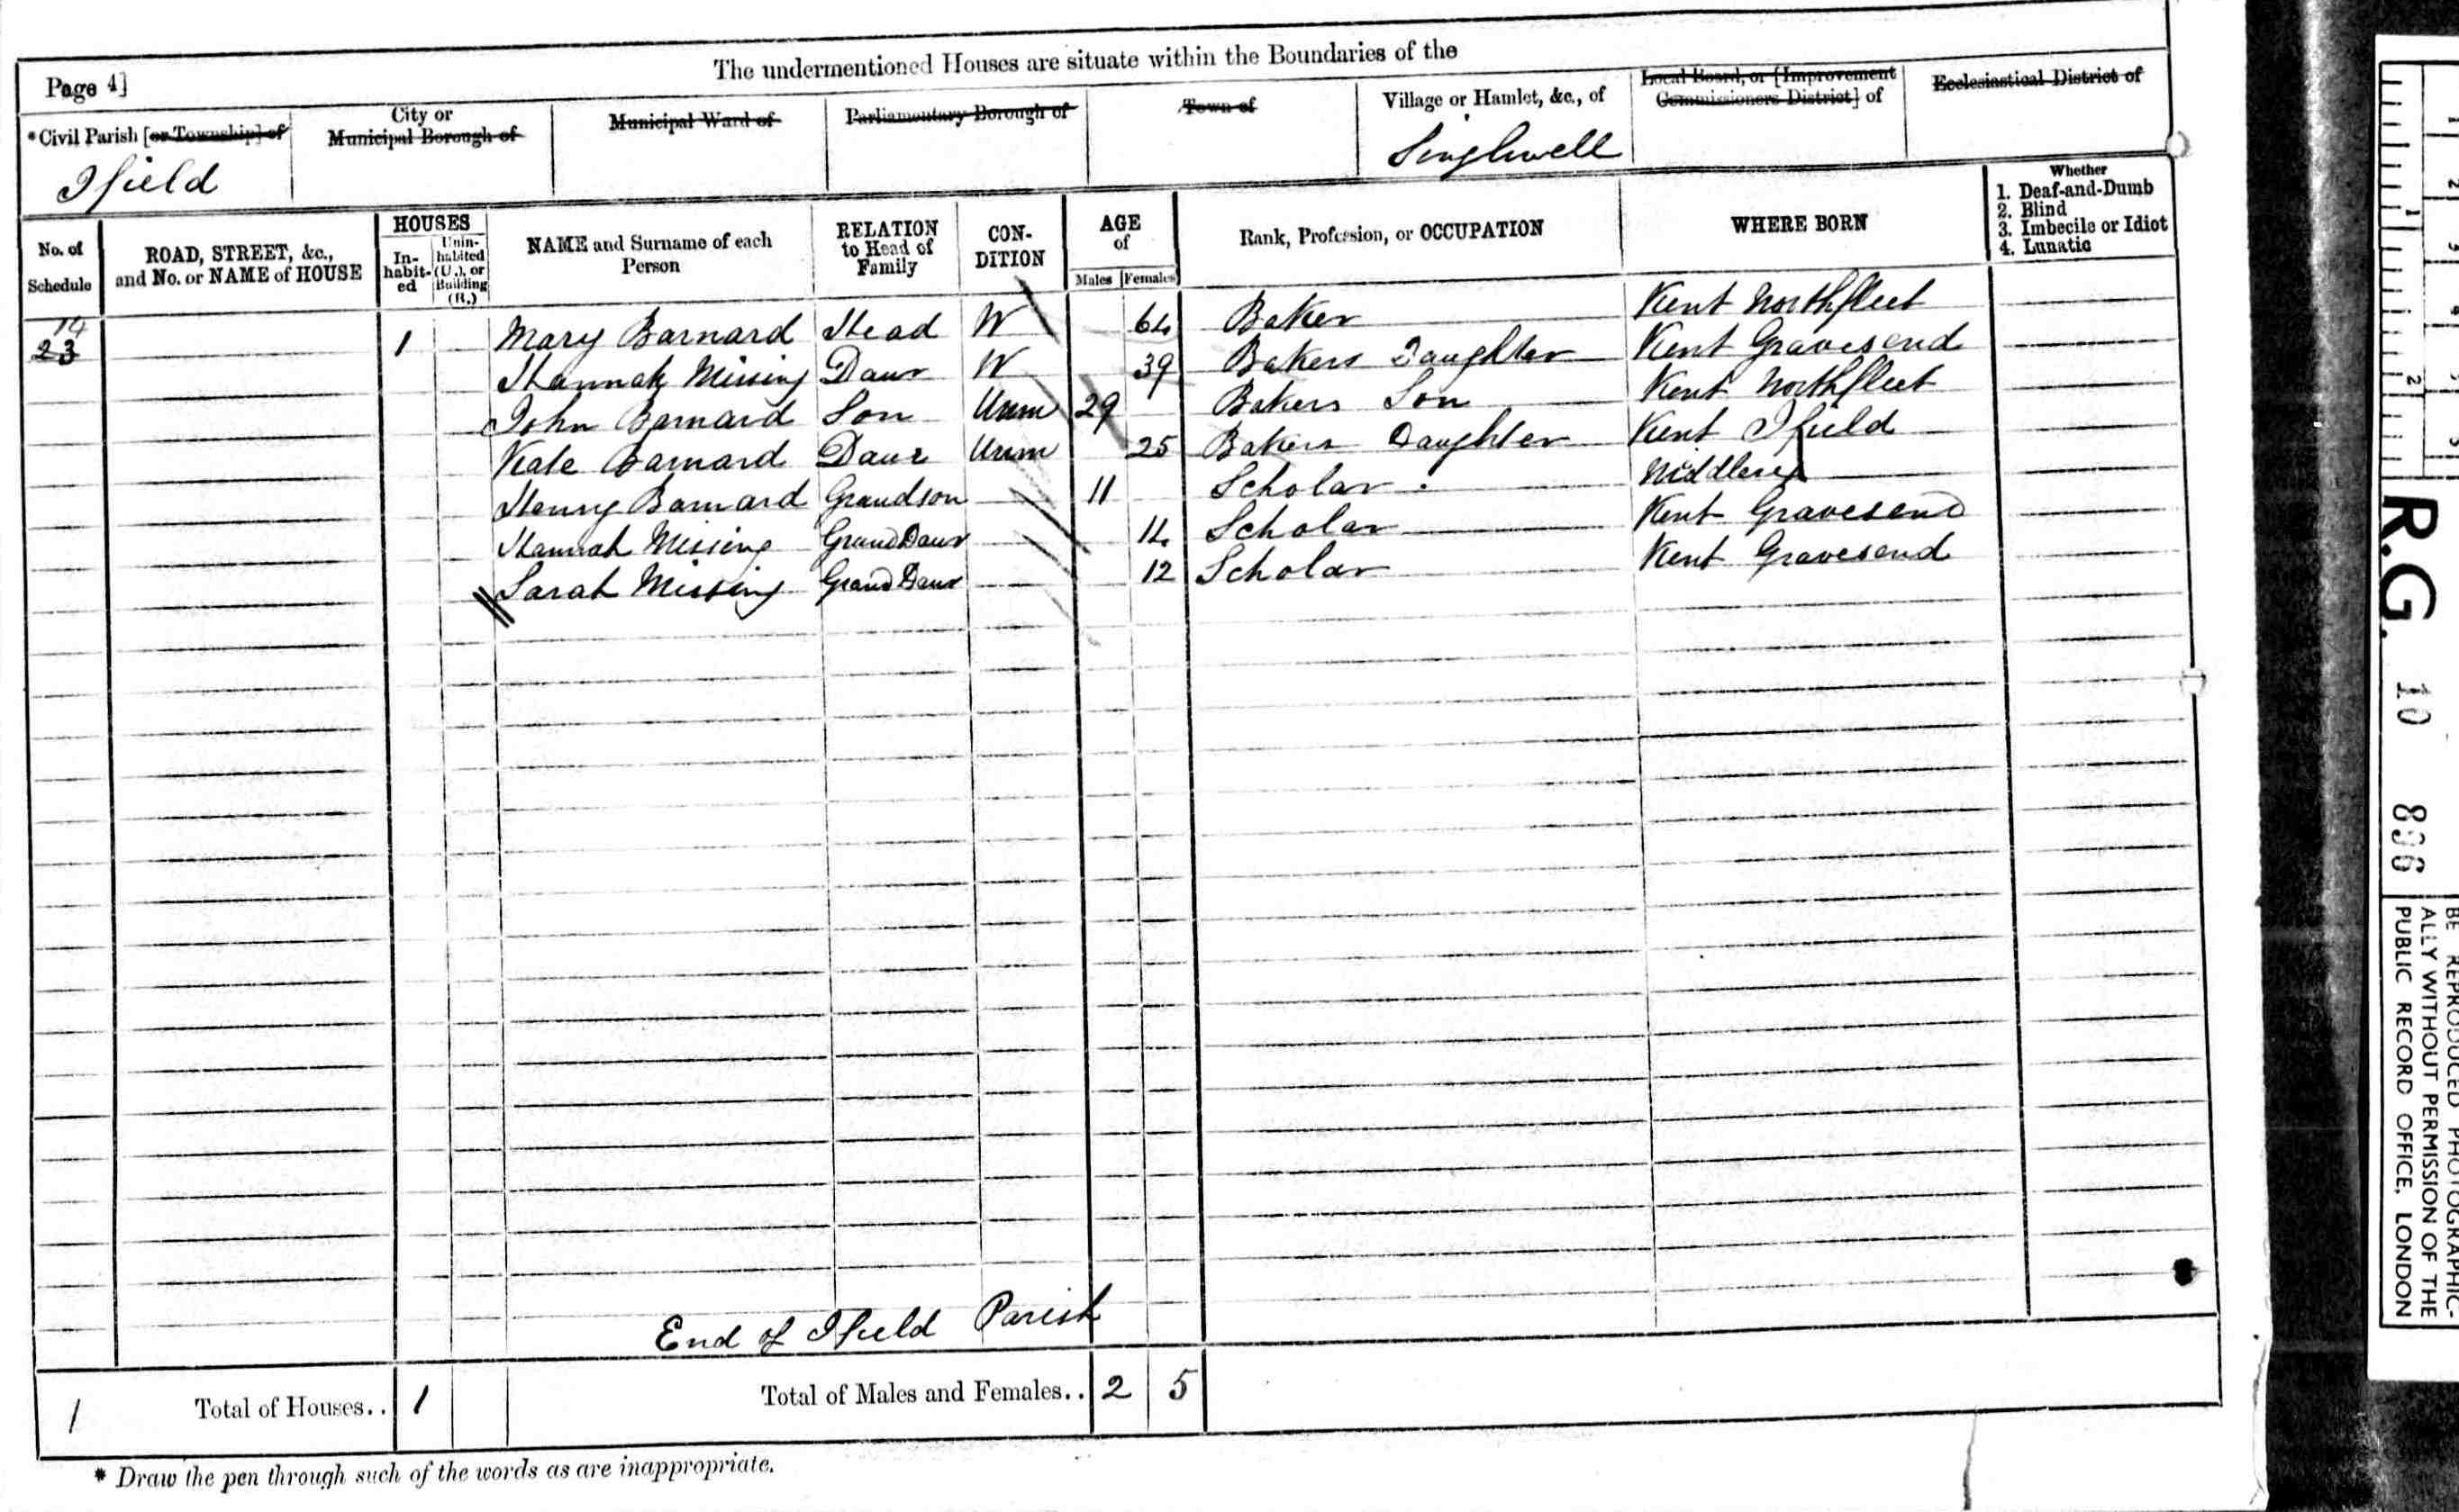 Page 4]
The undermentioned Houses are situate within the Boundaries of the
*Civil Parish [or Township] of
City or Municipal Borough of
Municipal Ward of
Parliamentary Borough of
Town of
Village or Hamlet, &c., of
Local Board, or [Improvement Commissioners District] of
Ecclesiastical District of
Ifield
Singlwell
No. of Schedule
ROAD, STREET, &c., and No. or NAME of HOUSE
HOUSES
In-habit-ed
Unin-habited (U.), or Building (B.)
NAME and Surname of each Person
RELATION to Head of Family
CON-DITION
AGE of
Males
Females
Rank, Profession, or OCCUPATION
WHERE BORN
Whether
1. Deaf-and-Dumb
2. Blind
3. Imbecile or Idiot
4. Lunatic
23 1 Mary Barnard Head W 64 Baker Kent Northfleet
Hannah Missing Daur W 39 Bakers Daughter Kent Gravesend
John Barnard Son Unm 29 Bakers Son Kent Northfleet
Kate Barnard Daur Unm 25 Bakers Daughter Kent Ifield
Henry Barnard Grandson 11 Scholar Middlesex
Hannah Missing Grand Daur 14 Scholar Kent Gravesend
Sarah Missing Grand Daur 12 Scholar Kent Gravesend
End of Ifield Parish
1 Total of Houses.. 1 Total of Males and Females.. 2 5
* Draw the pen through such of the words as are inappropriate.
R.G. 10
BE REPRODUCED PHOTOGRAPHIC-
ALLY WITHOUT PERMISSION OF THE
PUBLIC RECORD OFFICE, LONDON